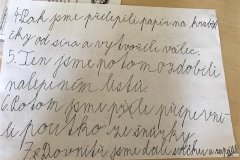 4. Pak jsme přelepili papír na krabič
ky od sýra a vytvořili válec.
5. Ten jsme potom ozdobili
nalepením listů.
6. Potom jsme ještě připevni
li poutko ze šňůrky.
7. Dovnitř jsme dali svíčku a